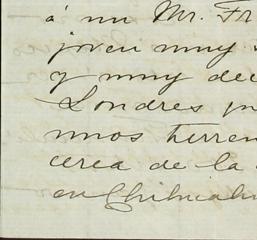 á un Mr. Fr
joven muy
y muy dec
Londres
unos terren
cerca de la
en Chihuahu